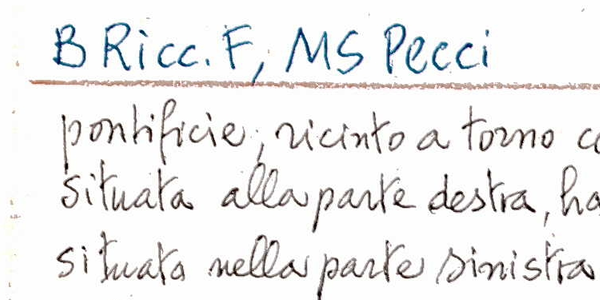 B Ricc. F, MS Pecci
pontificie, ricinto a torno
situata alla parte destra, ha
situata nella parte sinistra